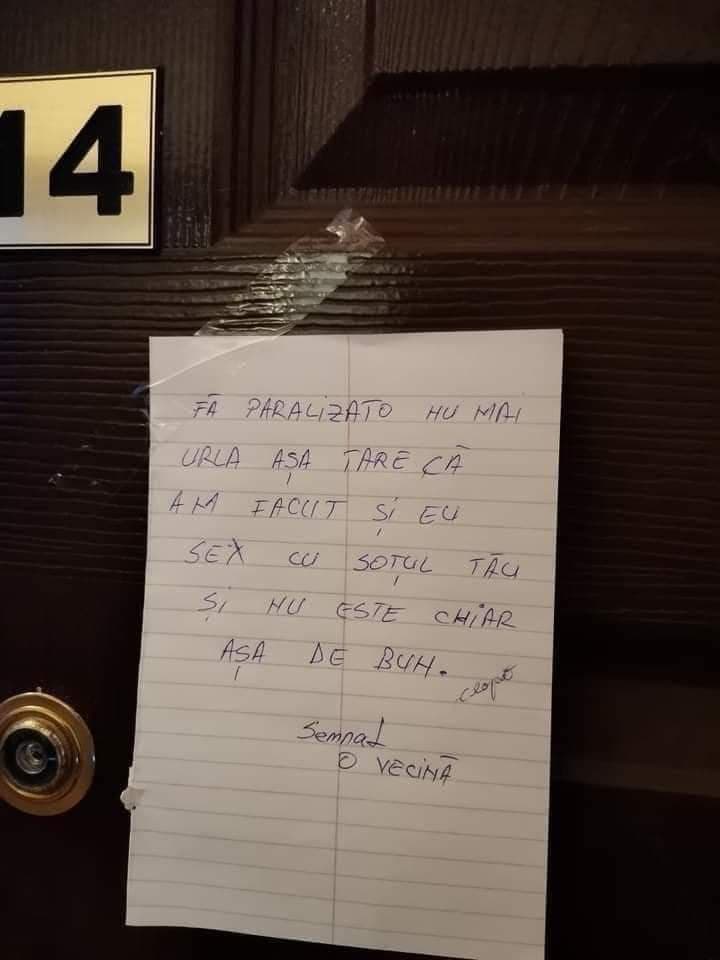 14
FĂ PARALIZATO NU MAI
URLA AȘA TARE CĂ
AM FACUT ȘI EU
SEX CU SOȚUL TĂU
ȘI NU ESTE CHIAR
AȘA DE BUN.
Semnat
O VECINĂ